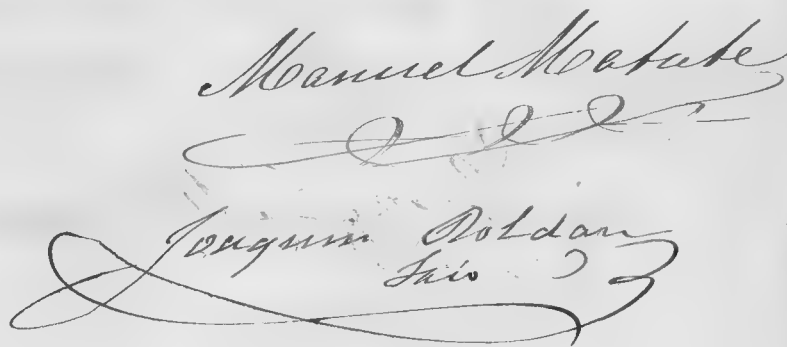 Manuel Matute
Joaquin Roldan